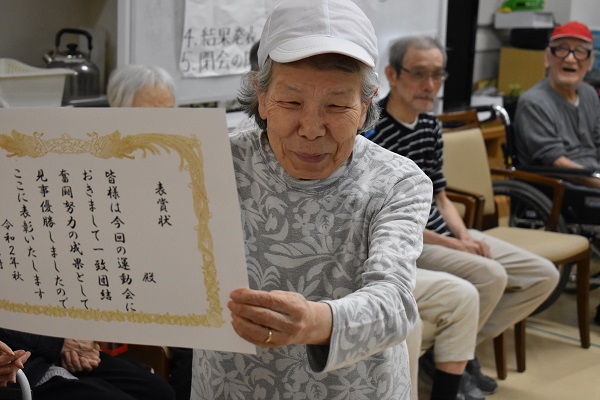 4.結果発表
5.閉会の
表賞状
殿
皆様は今回の運動会に
おきまして一致団結
奮闘努力の成果として
見事優勝しましたので
ここに表彰いたします
令和2年秋